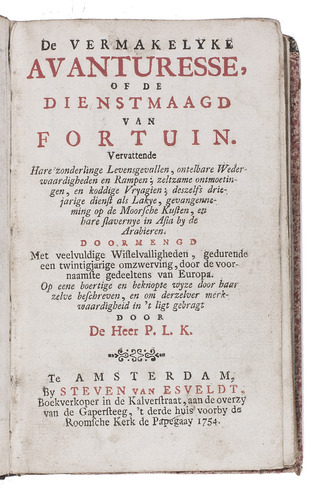 De VERMAKELYKE
AVANTURESSE,
OF DE
DIENSTMAAGD
VAN
FORTUIN.
Vervattende
Hare zonderlinge Levensgevallen, ontelbare Weder-
waardigheden en Rampen; zeltzame ontmoetin-
gen, en koddige Vryagien; deszelfs drie-
jarige dienst als Lakye, gevangenne-
ming op de Moorsche Kusten, en
hare slavernye in Asia by de
Arabieren.
DOORMENGD
Met veelvuldige Wisselvalligheden, gedurende
een twintigjarige omzwerving, door de voor-
naamste gedeeltens van Europa.
Op eene boertige en beknopte wyze door haar
zelve beschreven, en om derzelver merk-
waardigheid in 't ligt gebragt
DOOR
De Heer P. L. K.
Te AMSTERDAM,
By STEVEN VAN ESVELDT,
Boekverkoper in de Kalverstraat, aan de overzy
van de Gapersteeg, 't derde huis voorby de
Roomsche Kerk de Papegaay 1754.